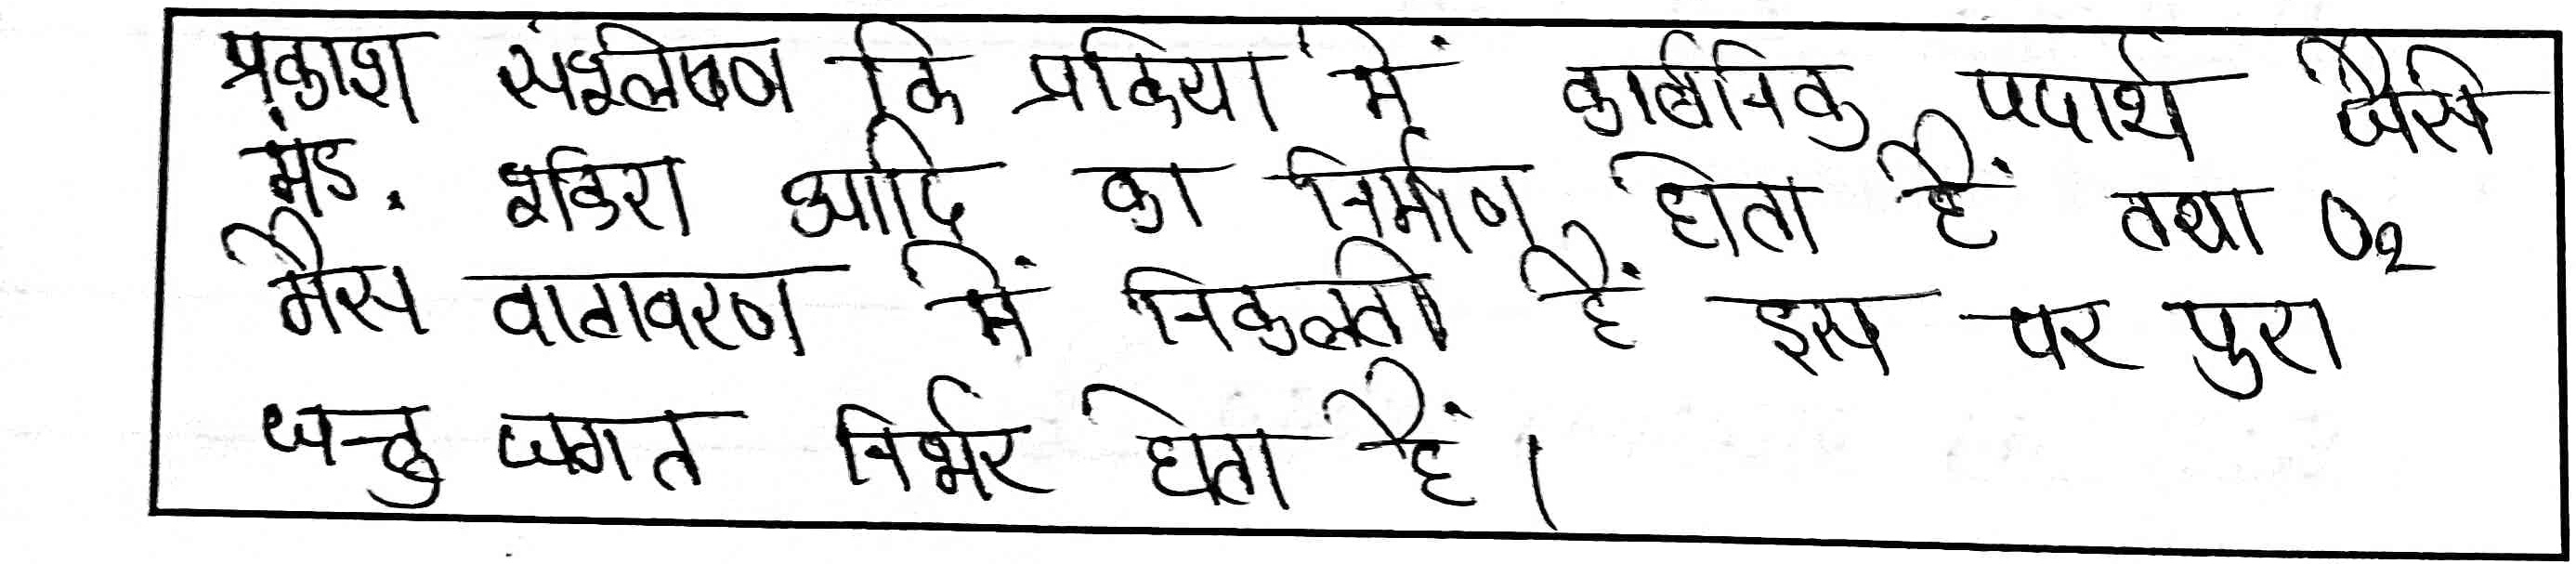 प्रकाश संश्लेषण कि प्रकिया में कार्बनिक पपार्थ जैसे
मंड, शर्करा आदि का निर्माण होता हैं तथा O₂
गैस वातावरण में निकलती हैं इस पर पुरा
जन्तु जगत निर्भर होता हैं।